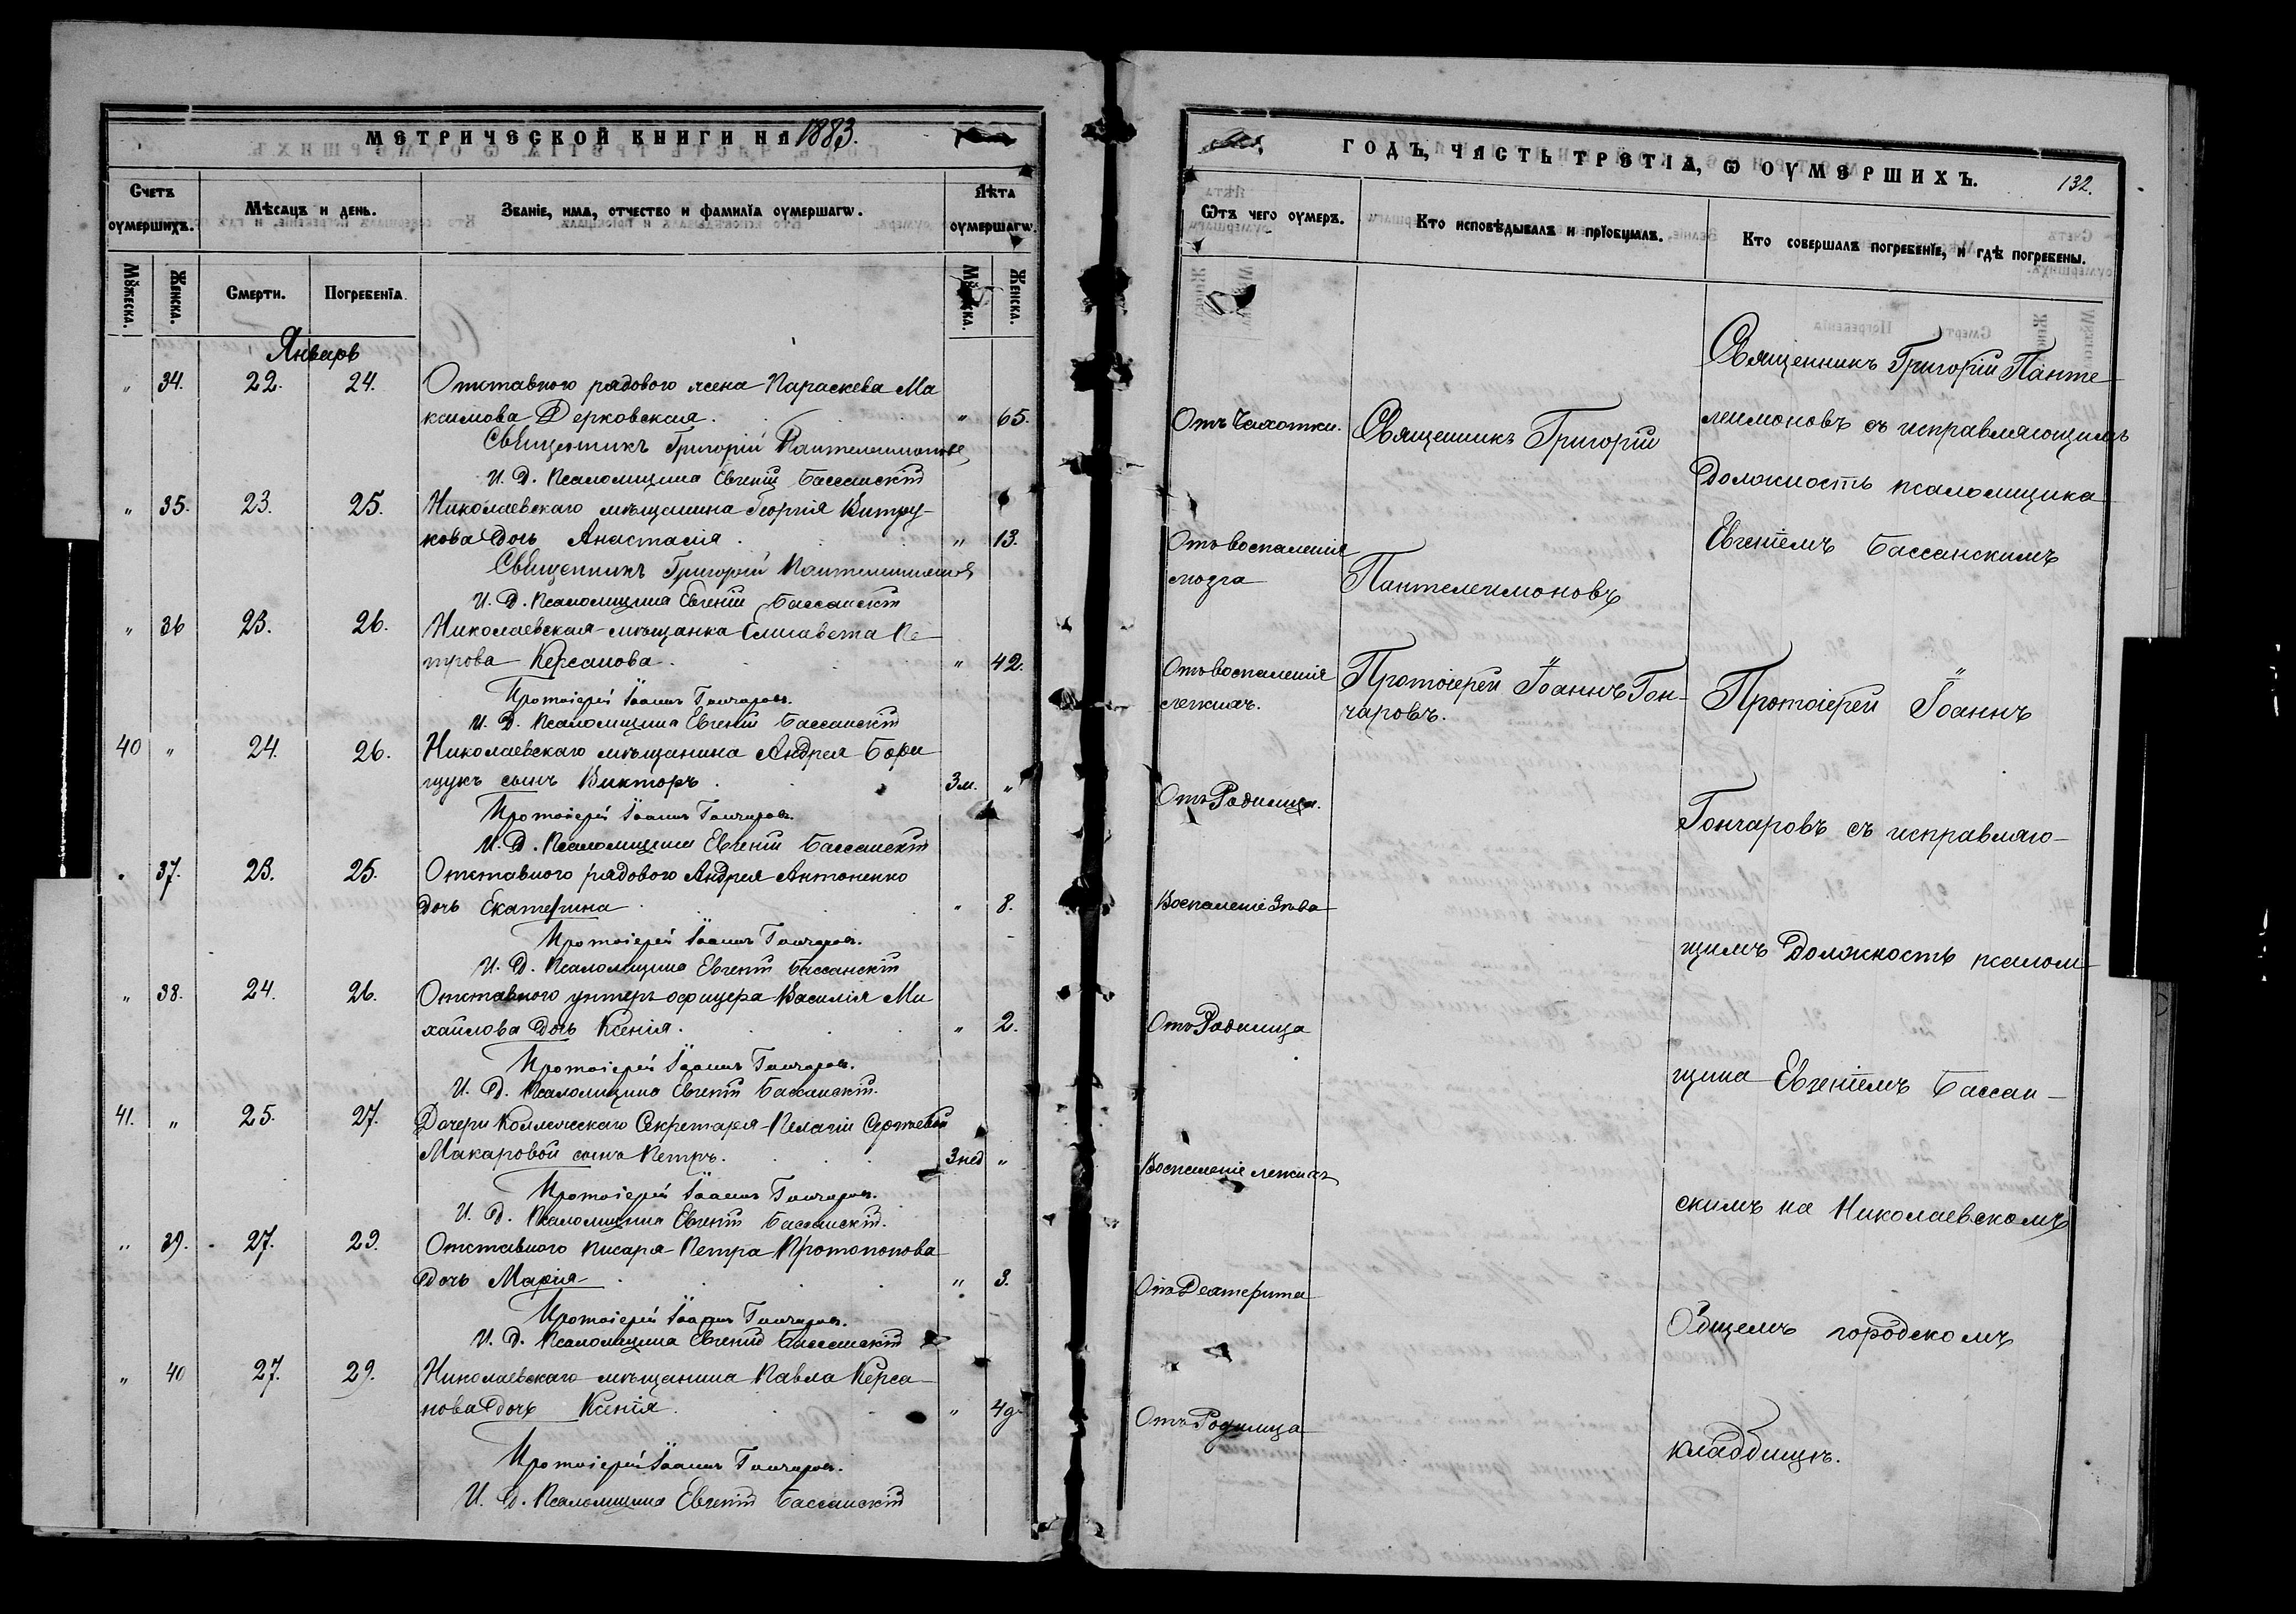 МЕТРИЧЕСКОЙ КНИГИ НА 1883.
Счетъ оумершихъ.
Мѣсяцъ и день.
Званіе, имя, отчество и фамилія оумершагѡ.
Лѣта оумершагѡ.
Мꙋжеска.
Женска.
Смерти.
Погребенія.
Мꙋжеска.
Женска.
Январь
" 34. 22. 24. Отставного рядового жена Параскева Ма
ксимова Дерковская. " 65.
Священникъ Григорій Пантелеимоновъ
И. Д. Псаломщика Евгеній Бассанскій
" 35. 23. 25. Николаевскаго мѣщанина Георгія Витру-
кова дочь Анастасія. " 13.
Священникъ Григорій Пантелеимоновъ
И. Д. Псаломщика Евгеній Бассанскій
" 36 23. 26. Николаевская мѣщанка Елисавета Пе-
трова Керсанова. " 42.
Протоіерей Іоаннъ Гончаровъ.
И. Д. Псаломщика Евгеній Бассанскій
40 " 24. 26. Николаевскаго мѣщанина Андрея Бори
щукъ сынъ Викторъ. 3 м. "
Протоіерей Іоаннъ Гончаровъ.
И. Д. Псаломщика Евгеній Бассанскій
" 37. 23. 25. Отставного рядового Андрея Антоненко
дочь Екатерина. " 8.
Протоіерей Іоаннъ Гончаровъ.
И. Д. Псаломщика Евгеній Бассанскій
" 38. 24. 26. Отставного унтеръ офицера Василія Ми
хайлова дочь Ксенія. " 2.
Протоіерей Іоаннъ Гончаровъ.
И. Д. Псаломщика Евгеній Бассанскій.
41. " 25. 27. Дочери Коллежскаго Секретаря Пелагіи Сергѣевой
Макаровой сынъ Петръ. 3 нед "
Протоіерей Іоаннъ Гончаровъ.
И. Д. Псаломщика Евгеній Бассанскій.
" 39. 27. 29. Отставного писаря Петра Протопопова
дочь Марія. " 3.
Протоіерей Іоаннъ Гончаровъ.
И. Д. Псаломщика Евгеній Бассанскій
" 40 27. 29. Николаевскаго мѣщанина Павла Керса-
нова дочь Ксенія. " 4 д.
Протоіерей Іоаннъ Гончаровъ.
И. Д. Псаломщика Евгеній Бассанскій
ГОДЪ, ЧАСТЬ ТРЕТІЯ, Ѡ ОУМЕРШИХЪ.
132.
Ѿтъ чего оумеръ.
Кто исповѣдывалъ и пріобщалъ.
Кто совершалъ погребеніе, и гдѣ погребены.
Отъ Чахотки.
Отъ воспаленія
мозга
Отъ воспаленія
легкихъ.
Отъ Родимца.
Воспаленіе Зѣва
Отъ Родимца
Воспаленіе легкихъ
Отъ Дехтерита
Отъ Родимца
Священникъ Григорій
Пантелеимоновъ
Протоіерей Іоаннъ Гон-
чаровъ.
Священникъ Григорій Панте-
леимоновъ съ исправляющимъ
Должность псаломщика
Евгеніемъ Бассанскимъ
Протоіерей Іоаннъ
Гончаровъ съ исправляю-
щимъ Должность псалом-
щика Евгеніемъ Бассан-
скимъ на Николаевскомъ
Общемъ городскомъ
кладбищѣ.